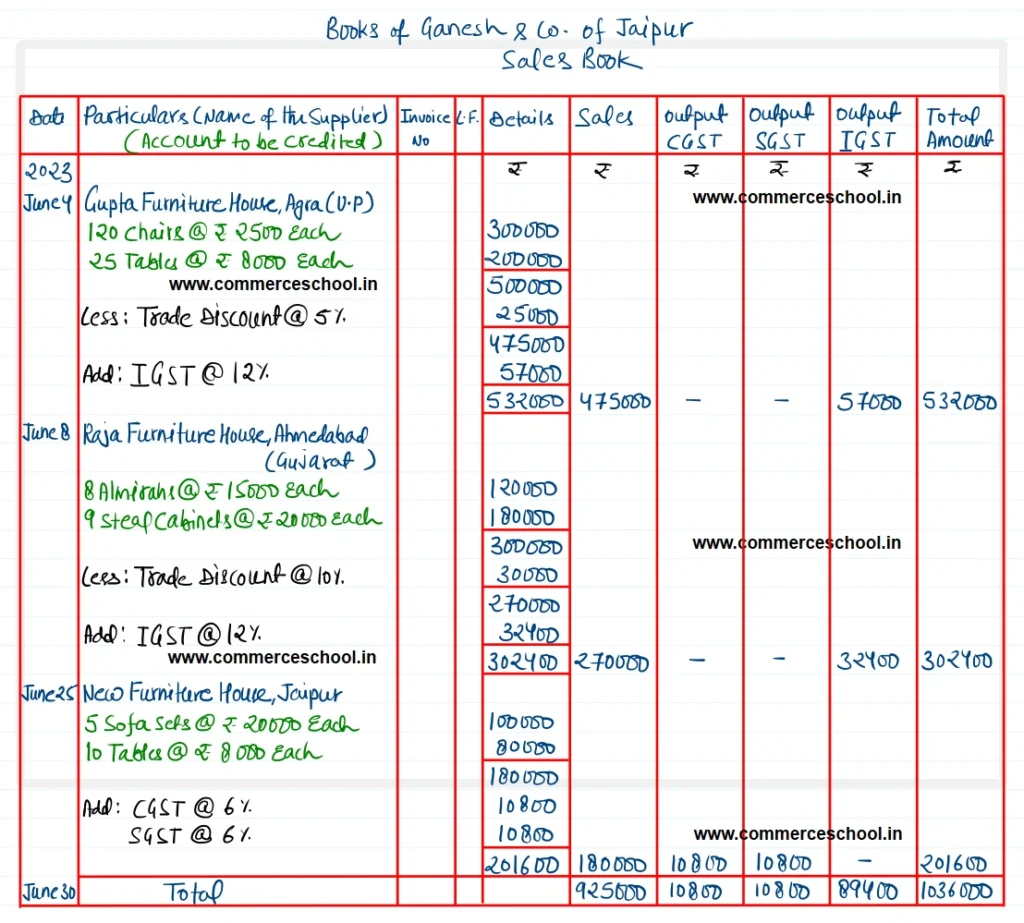 Books of Ganesh & Co. of Jaipur
Sales Book
Date Particulars (Name of the Supplier) Invoice L.F. Details Sales Output Output Output Total
(Account to be credited) No CGST SGST IGST Amount
2023 ₹ ₹ ₹ ₹ ₹ ₹
June 4 Gupta Furniture House, Agra (U.P) www.commerceschool.in
120 Chairs @ ₹ 2500 Each 300000
25 Tables @ ₹ 8000 Each 200000
www.commerceschool.in 500000
Less: Trade Discount @ 5%. 25000
475000
Add: IGST @ 12% 57000
532000 475000 – – 57000 532000
June 8 Raja Furniture House, Ahmedabad
(Gujarat)
8 Almirahs @ ₹ 15000 Each 120000
9 Steal Cabinets @ ₹ 20000 Each 180000
300000 www.commerceschool.in
Less: Trade Discount @ 10%. 30000
270000
Add: IGST @ 12%. 32400
www.commerceschool.in 302400 270000 – – 32400 302400
June 25 New Furniture House, Jaipur
5 Sofa Sets @ ₹ 20000 Each 100000
10 Tables @ ₹ 8000 Each 80000
180000
Add: CGST @ 6%. 10800
SGST @ 6%. 10800 www.commerceschool.in
201600 180000 10800 10800 – 201600
June 30 Total 925000 10800 10800 89400 1036000